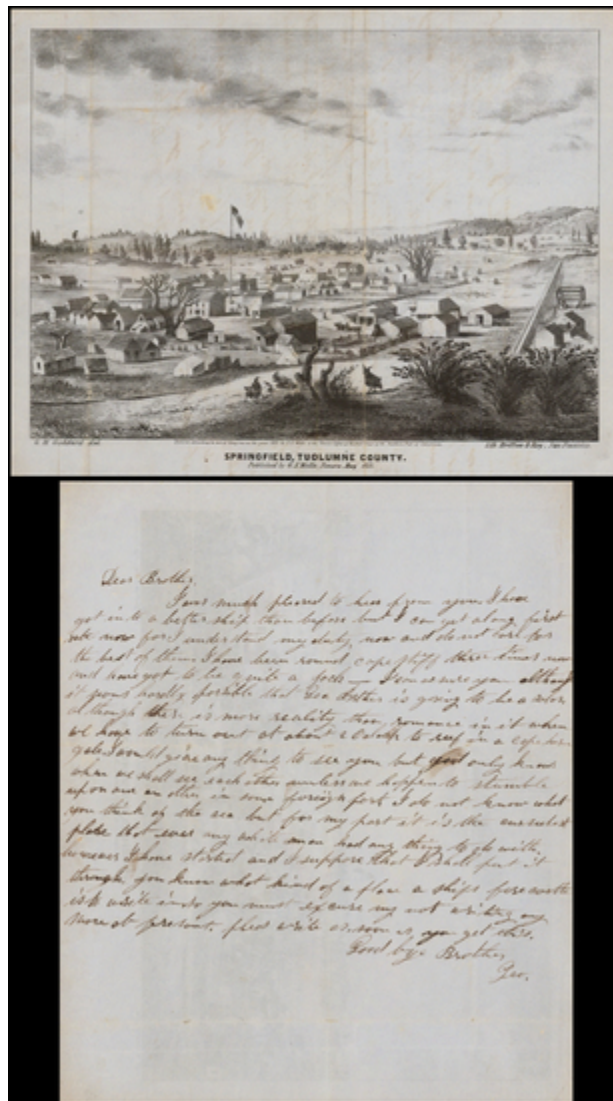 SPRINGFIELD, TUOLUMNE COUNTY.
Published by
Dear Brother,
I was much pleased to hear from you I have
got into a better ship than before but I can get along first
rate now for I understand my duty now and do not care for
the best of them I have been round cape stiff three times now
and have got to be quite a I can assure you
it seems hardly possible that is going to be a
although there is more reality than romance in it when
we have to turn out at about 2 oclock to reef in a cape horn
gale I would give any thing to see you but god only know
when we shall see each other unless we happen to stumble
upon one an other in some foreign port I do not know what
you think of the sea but for my part it is the
place that ever any white man had any thing to do with,
however I have started and I suppose that I shall put it
through you know what kind of a place a ships
is to write in so you must excuse my not writing any
more at present. pleas write as soon as you get this.
Good bye Brother,
Geo.